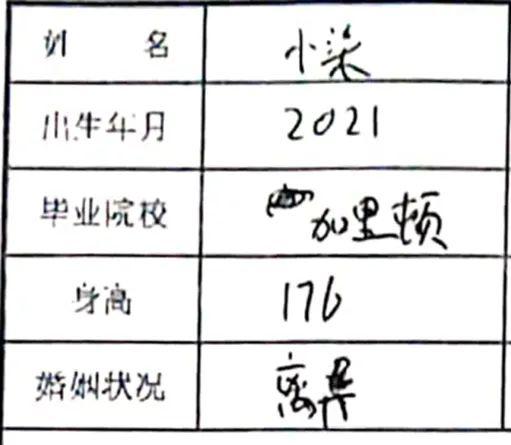 姓 名 小柒
出生年月 2021
毕业院校 加里顿
身高 176
婚姻状况 离异